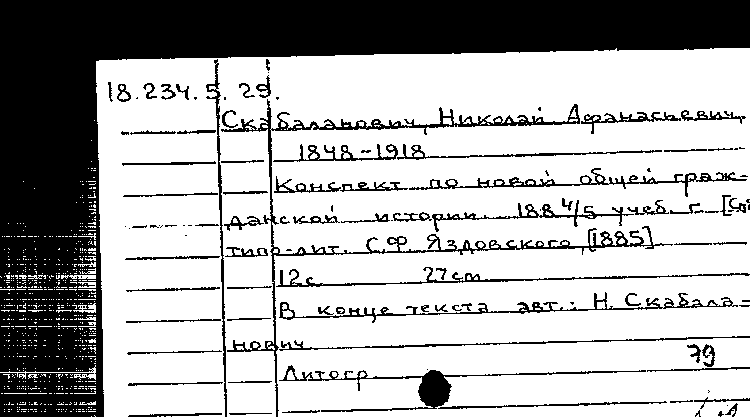 18.234.5.29.
Скабаланович, Николай Афанасьевич,
1848-1918
Конспект по новой общей граж-
данской истории. 188 4/5 учеб. г. [Спб
типо-лит. С.Ф. Яздовского, [1885]
12с. 27см.
В конце текста авт.: Н. Скабала-
нович
Литогр.
79